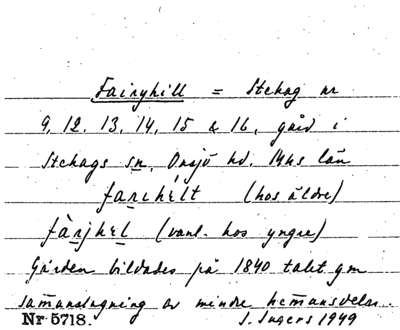 Fairyhill = Stehag nr
9, 12, 13, 14, 15 & 16, gård i
Stehags sn, Onsjö hd. M͞hs län
farihélt (hos äldre)
fàrjhɛl (vanl. hos yngre)
Gården bildades på 1840 talet gm
sam̄anslagning av mindre hem̄ansdelar.
Nr 5718. S. Ingers 1949